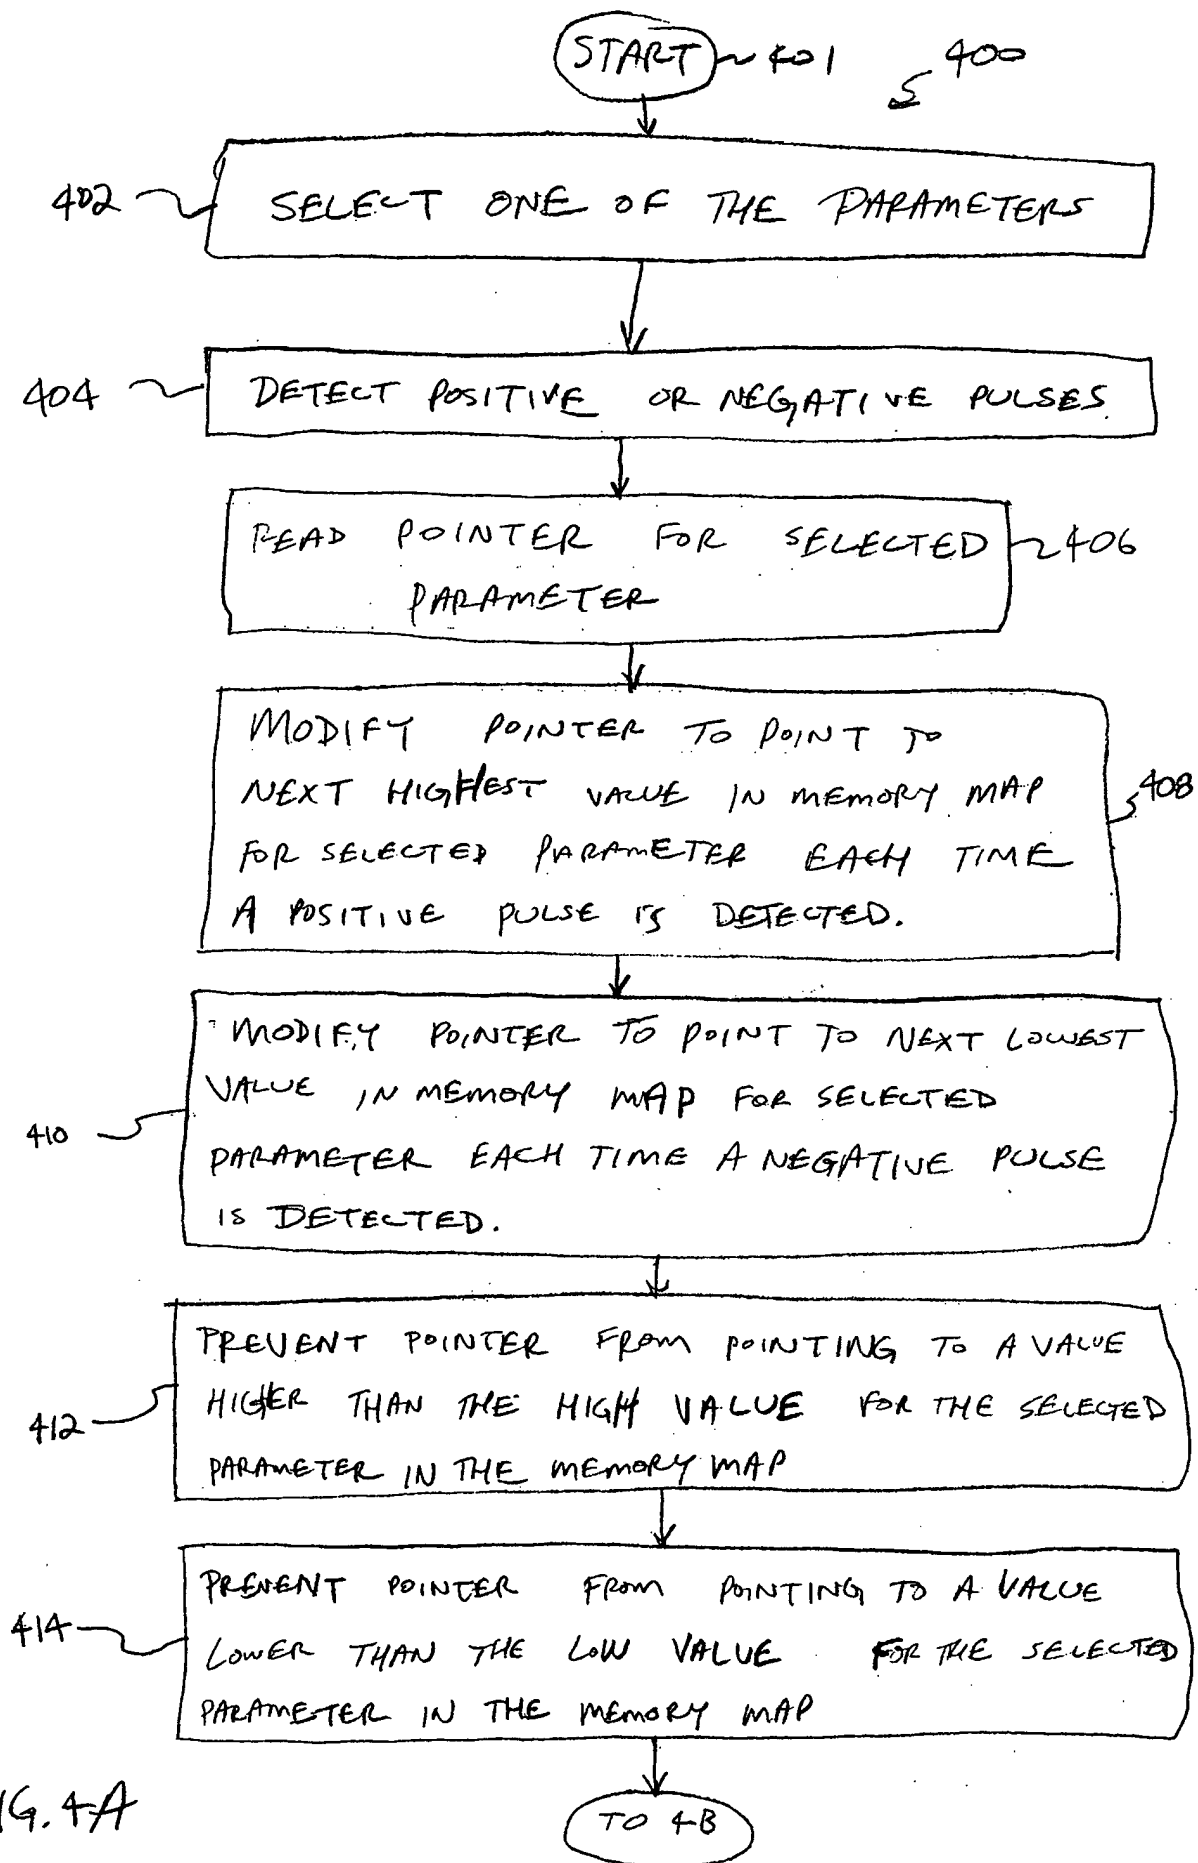 START 401
400
402 SELECT ONE OF THE PARAMETERS
404 DETECT POSITIVE OR NEGATIVE PULSES
READ POINTER FOR SELECTED 406
PARAMETER
MODIFY POINTER TO POINT TO
NEXT HIGHEST VALUE IN MEMORY MAP 408
FOR SELECTED PARAMETER EACH TIME
A POSITIVE PULSE IS DETECTED.
MODIFY POINTER TO POINT TO NEXT LOWEST
VALUE IN MEMORY MAP FOR SELECTED
410 PARAMETER EACH TIME A NEGATIVE PULSE
IS DETECTED.
PREVENT POINTER FROM POINTING TO A VALUE
412 HIGHER THAN THE HIGH VALUE FOR THE SELECTED
PARAMETER IN THE MEMORY MAP
PREVENT POINTER FROM POINTING TO A VALUE
414 LOWER THAN THE LOW VALUE FOR THE SELECTED
PARAMETER IN THE MEMORY MAP
IG. 4A
TO 4B